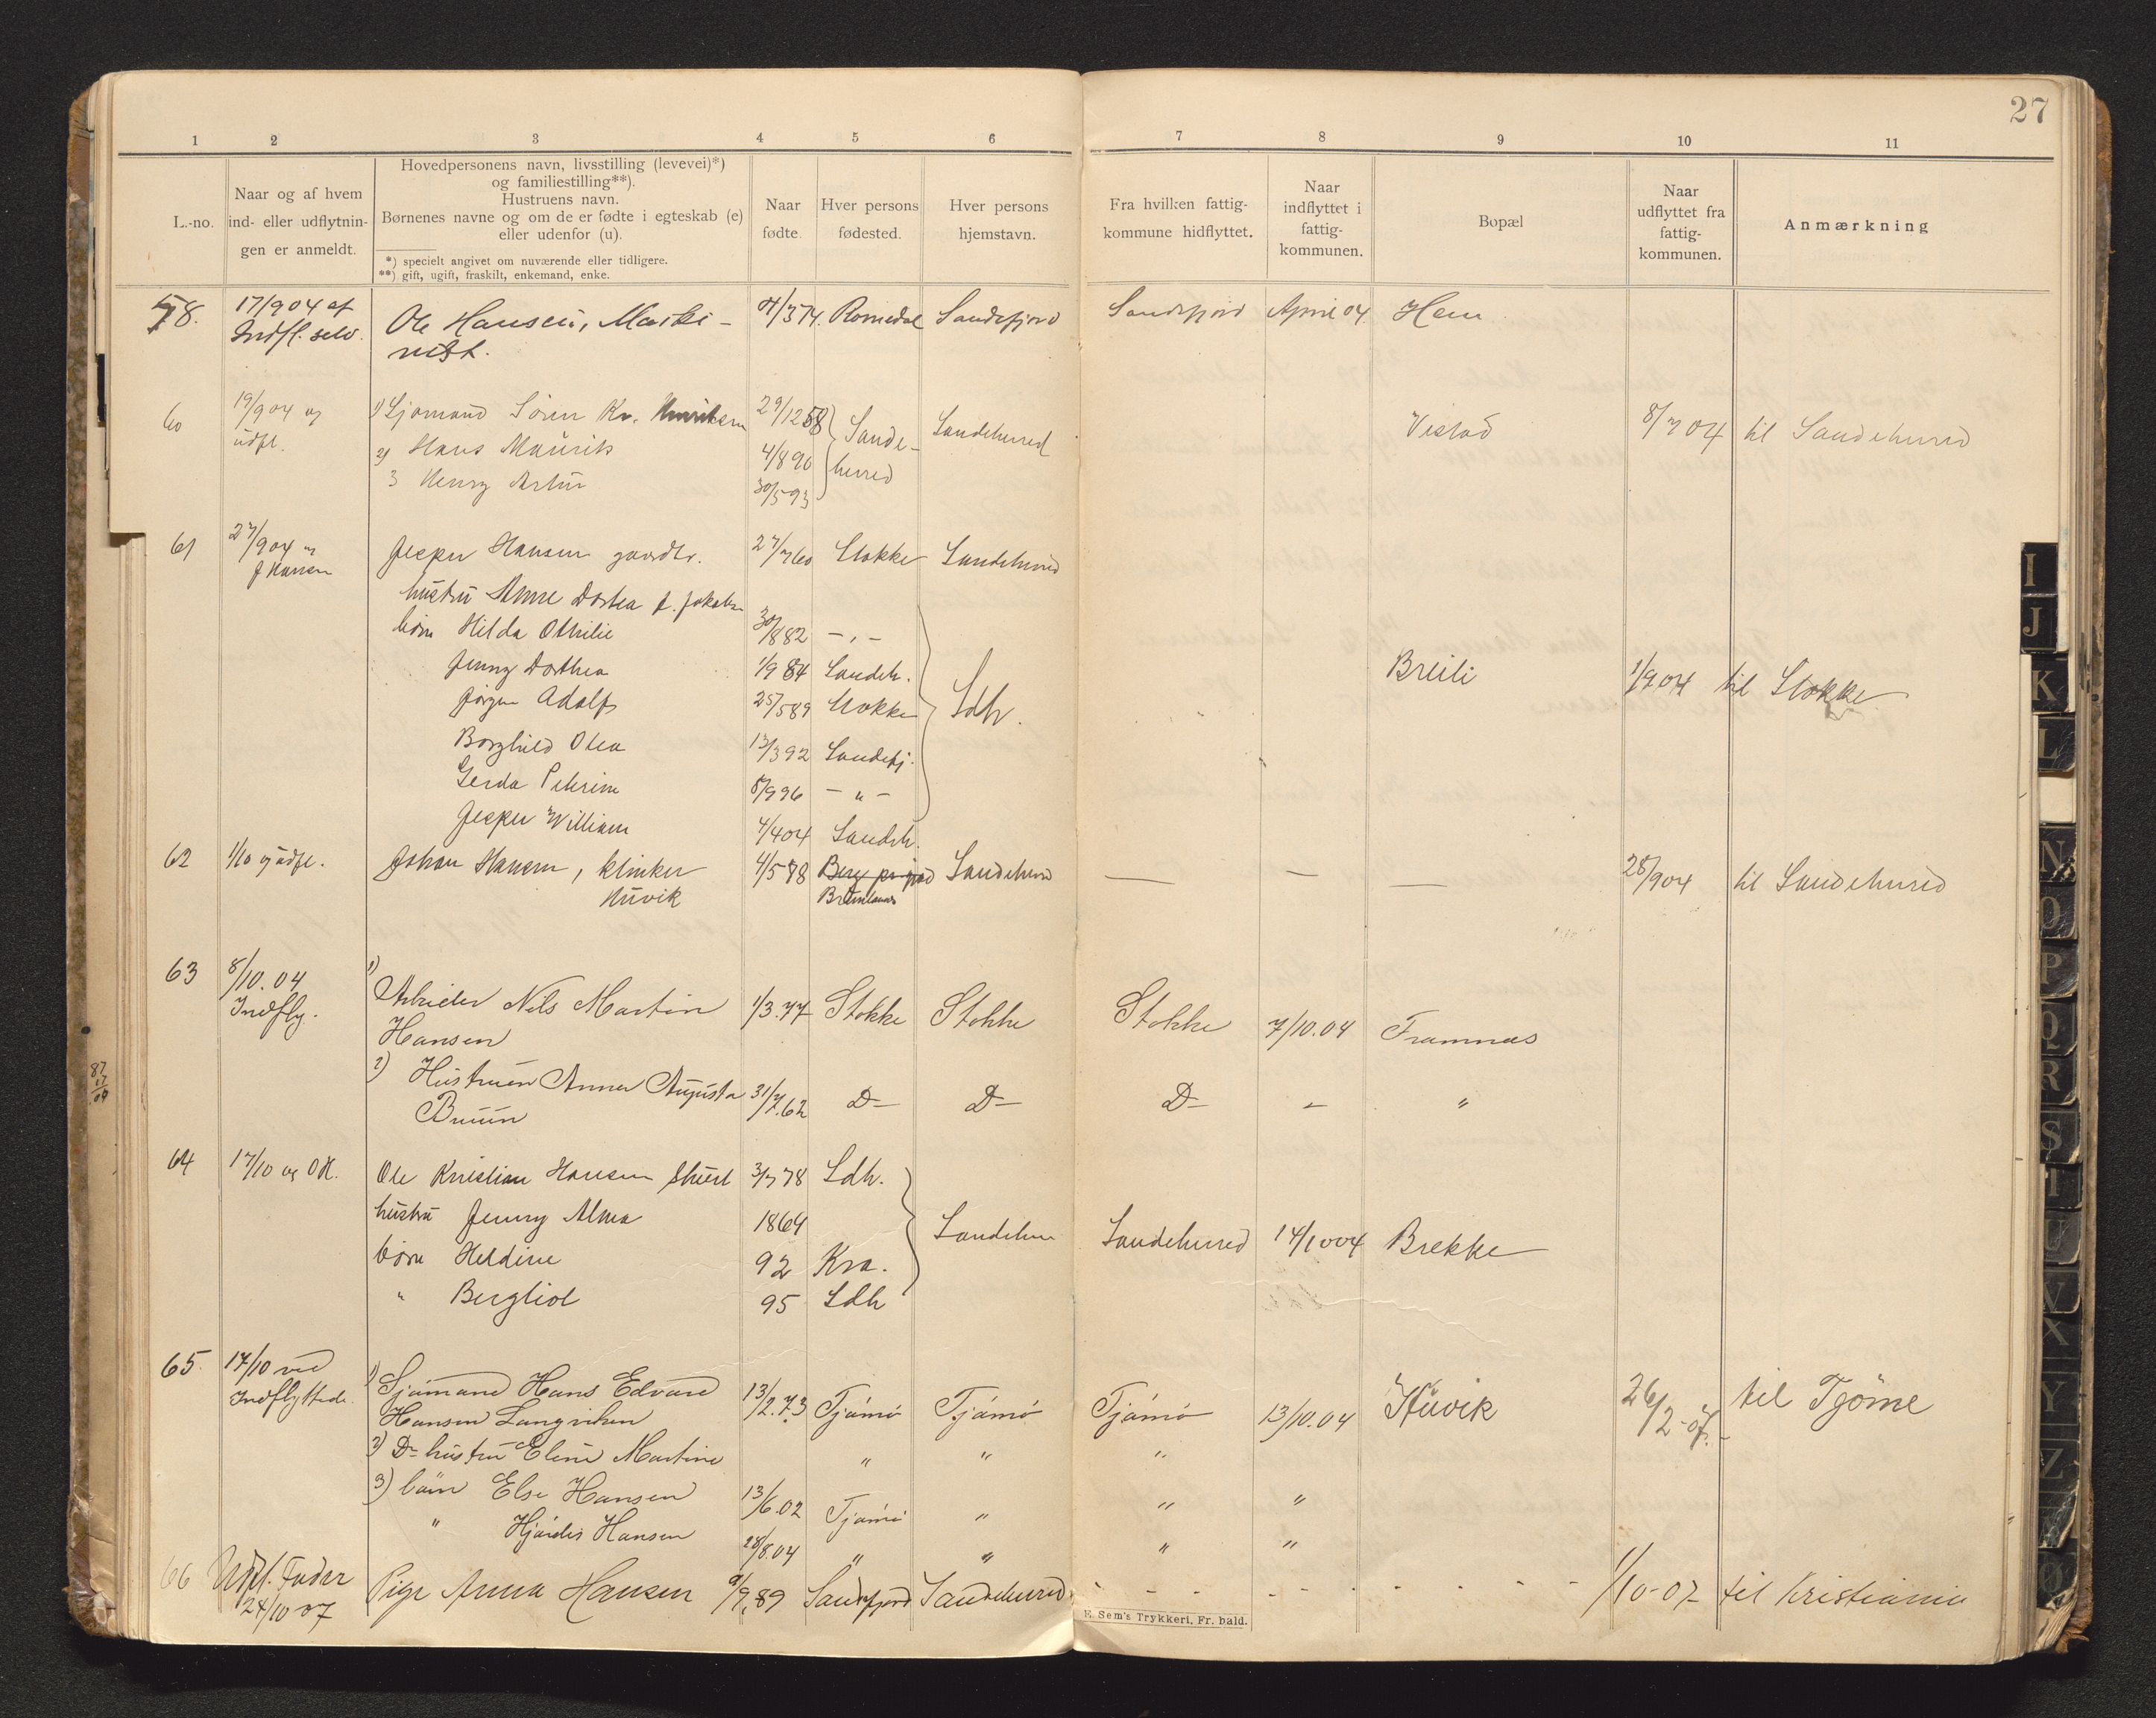 27
1 2 3 4 5 6 7 8 9 10 11
L.-no.
Naar og af hvem
ind- eller udflytnin-
gen er anmeldt.
Hovedpersonens navn, livsstilling (levevei)*)
og familiestilling**).
Hustruens navn.
Børnenes navne og om de er fødte i egteskab (e)
eller udenfor (u).
*) specielt angivet om nuværende eller tidligere.
**) gift, ugift, fraskilt, enkemand, enke.
Naar
fødte.
Hver persons
fødested.
Hver persons
hjemstavn.
Fra hvilken fattig-
kommune hidflyttet.
Naar
indflyttet i
fattig-
kommunen.
Bopæl
Naar
udflyttet fra
fattig-
kommunen.
Anmærkning
58. 17/904 af Ole Hansen, Maski- 4/374. Romedal Sandefjord Sandefjord April 04 Hem
Indfl. selv. nist.
60 19/904 og 1) Sjømand Søren Kr. Henriksen 29/1258 Sande- Sandeherred Vestad 8/704 til Sandeherred
udfl. 2) Hans Maurits 4/890 herred
3 Henry Artur 30/593
61 27/904 og Jesper Hansen gaardbr. 27/760 Stokke Sandeherred
J Hansen hustru Anne Dortea f. Jakobsen
børn Hilda Othilie 30/882 - " -
Jenny Dorthea 1/984 Sandeh. Breili 1/904 til Stokke
Jørgen Adolf 25/589 Stokke Sdh.
Borghild Olea 13/392 Sandefj.
Gerda Petrine 8/996 - " -
Jesper William 4/404 Sandeh.
62 1/10 og udfl. Johan Hansen, klinker 4/588 Sandeherred — — — 28/904 til Sandeherred
Huvik Brunlanes
63 8/10.04 1) Arbeider Nils Martin 1/3.77 Stokke Stokke Stokke 7/10.04 Framnæs
Indfly. Hansen
2) Hustruen Anna Augusta 31/7.62 D- D- D- - "
Bruun
64 17/10 og OK. Ole Kristian Hansen Stuert 3/778 Sdh.
hustru Jenny Alma 1864 Sandeher Sandeherred 14/1004 Brekke
børn Heldine 92 Kra.
" Bergliot 95 Sdh
65. 17/10 ved 1) Sjømand Hans Edvard 13/2.73 Tjømø Tjømø Tjømø 13/10.04 Huvik 26/2-07. til Tjöme
Indflyttede. Hansen Langviken
2) D- hustru Elene Martine " " "
3) børn Else Hansen 13/6.02 Tjømø " " "
" Hjørdis Hansen 28/8.04 " " " "
66 Udfl. Fader Pige Anna Hansen 9/9.89 Sandefjord Sandeherred - - - - - - - - - 1/10-07 til Kristiania
24/10 07
E. Sem's Trykkeri, Fr. hald.
87
17
04
I
J
K
L
N
O
P
Q
R
S
T
U
V
X
Y
Z
Ø